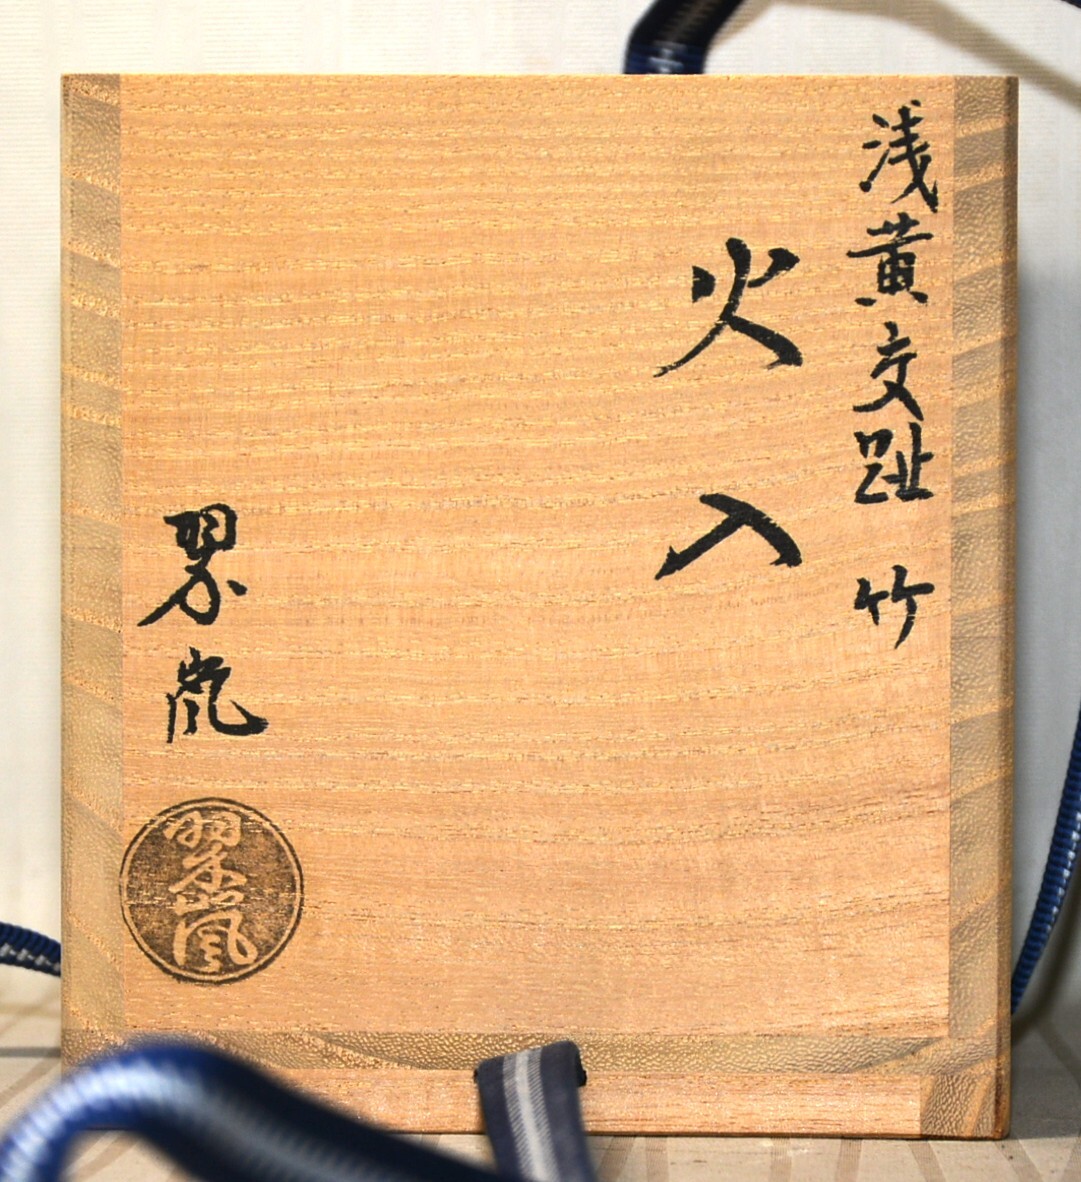 浅黄交趾 竹
火入
翠嵐
翠嵐